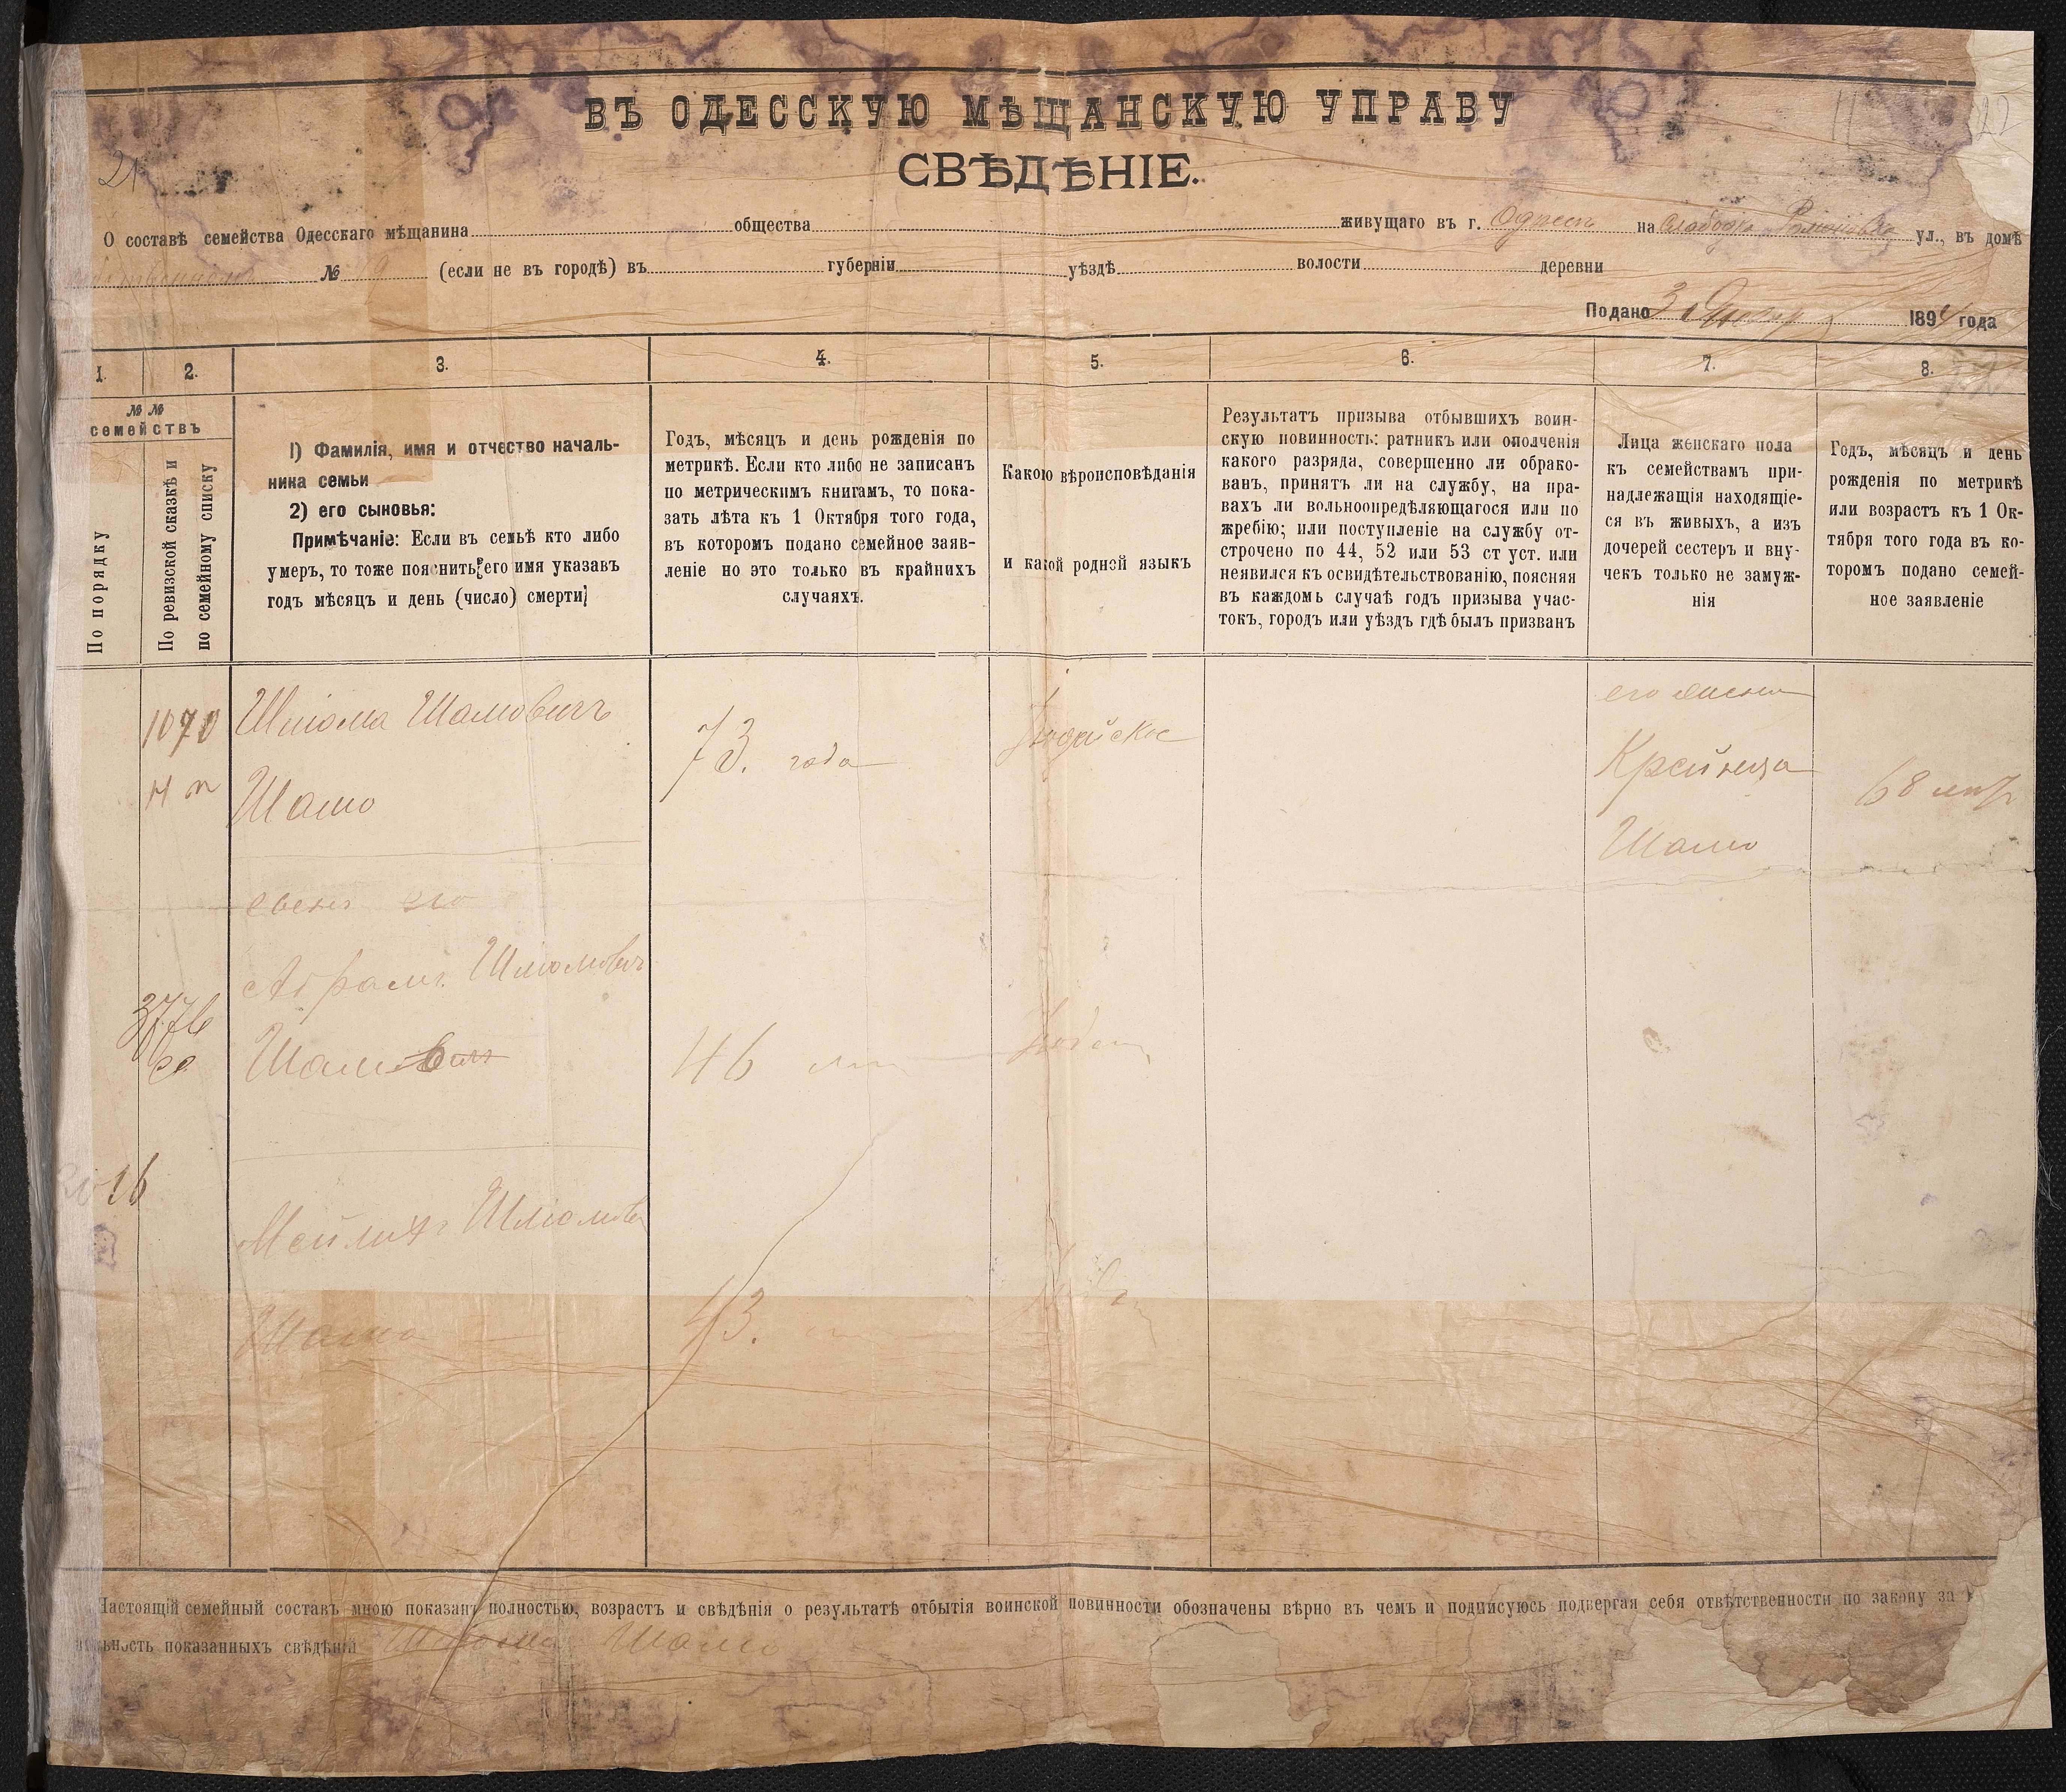 ВЪ ОДЕССКУЮ МѢЩАНСКУЮ УПРАВУ
СВѢДѢНІЕ.
21
О составѣ семейства Одесскаго мѣщанина общества живущаго въ г. Одессѣ на Слободкѣ Романовка ул., въ домѣ
№ (если не въ городѣ) въ губерніи уѣздѣ волости деревни
Подано 3 1894 года
1. 2. 3. 4. 5. 6. 7. 8.
№ №
семействъ
По порядку
По ревизской сказкѣ и
по семейному списку
1) Фамилія, имя и отчество началь-
ника семьи
2) его сыновья:
Примѣчаніе: Если въ семьѣ кто либо
умеръ, то тоже пояснить его имя указавъ
годъ мѣсяцъ и день (число) смерти
Годъ, мѣсяцъ и день рожденія по
метрикѣ. Если кто либо не записанъ
по метрическимъ книгамъ, то пока-
зать лѣта къ 1 Октября того года,
въ которомъ подано семейное заяв-
леніе но это только въ крайнихъ
случаяхъ.
Какою вѣроисповѣданія
и какой родной языкъ
Результатъ призыва отбывшихъ воин-
скую повинность: ратникъ или ополченія
какого разряда, совершенно ли обрако-
ванъ, принятъ ли на службу, на пра-
вахъ ли вольноопредѣляющагося или по
жребію; или поступленіе на службу от-
строчено по 44, 52 или 53 ст уст. или
неявился къ освидѣтельствованію, поясняя
въ каждомъ случаѣ годъ призыва учас-
токъ, городъ или уѣздъ гдѣ былъ призванъ
Лица женскаго пола
къ семействамъ при-
надлежащія находящіе-
ся въ живыхъ, а изъ
дочерей сестеръ и вну-
чекъ только не замуж-
нія
Годъ, мѣсяцъ и день
рожденія по метрикѣ
или возрастъ къ 1 Ок-
тября того года въ ко-
торомъ подано семей-
ное заявленіе
1070 Шліома Шамовичъ 73. года Іюдейское его жена
Шамо Крейнца 68 лѣтъ
Шамо
сынъ его
Абрамъ Шліомовичъ
Шамович 46
Мейлихъ Шліомов
Шамо 43.
Настоящій семейный составъ мною показанъ полностью, возрастъ и свѣдѣнія о результатѣ отбытія воинской повинности обозначены вѣрно въ чемъ и подписуюсь подвергая себя отвѣтственности по закону за
показанныхъ свѣдѣній Шліома Шамо